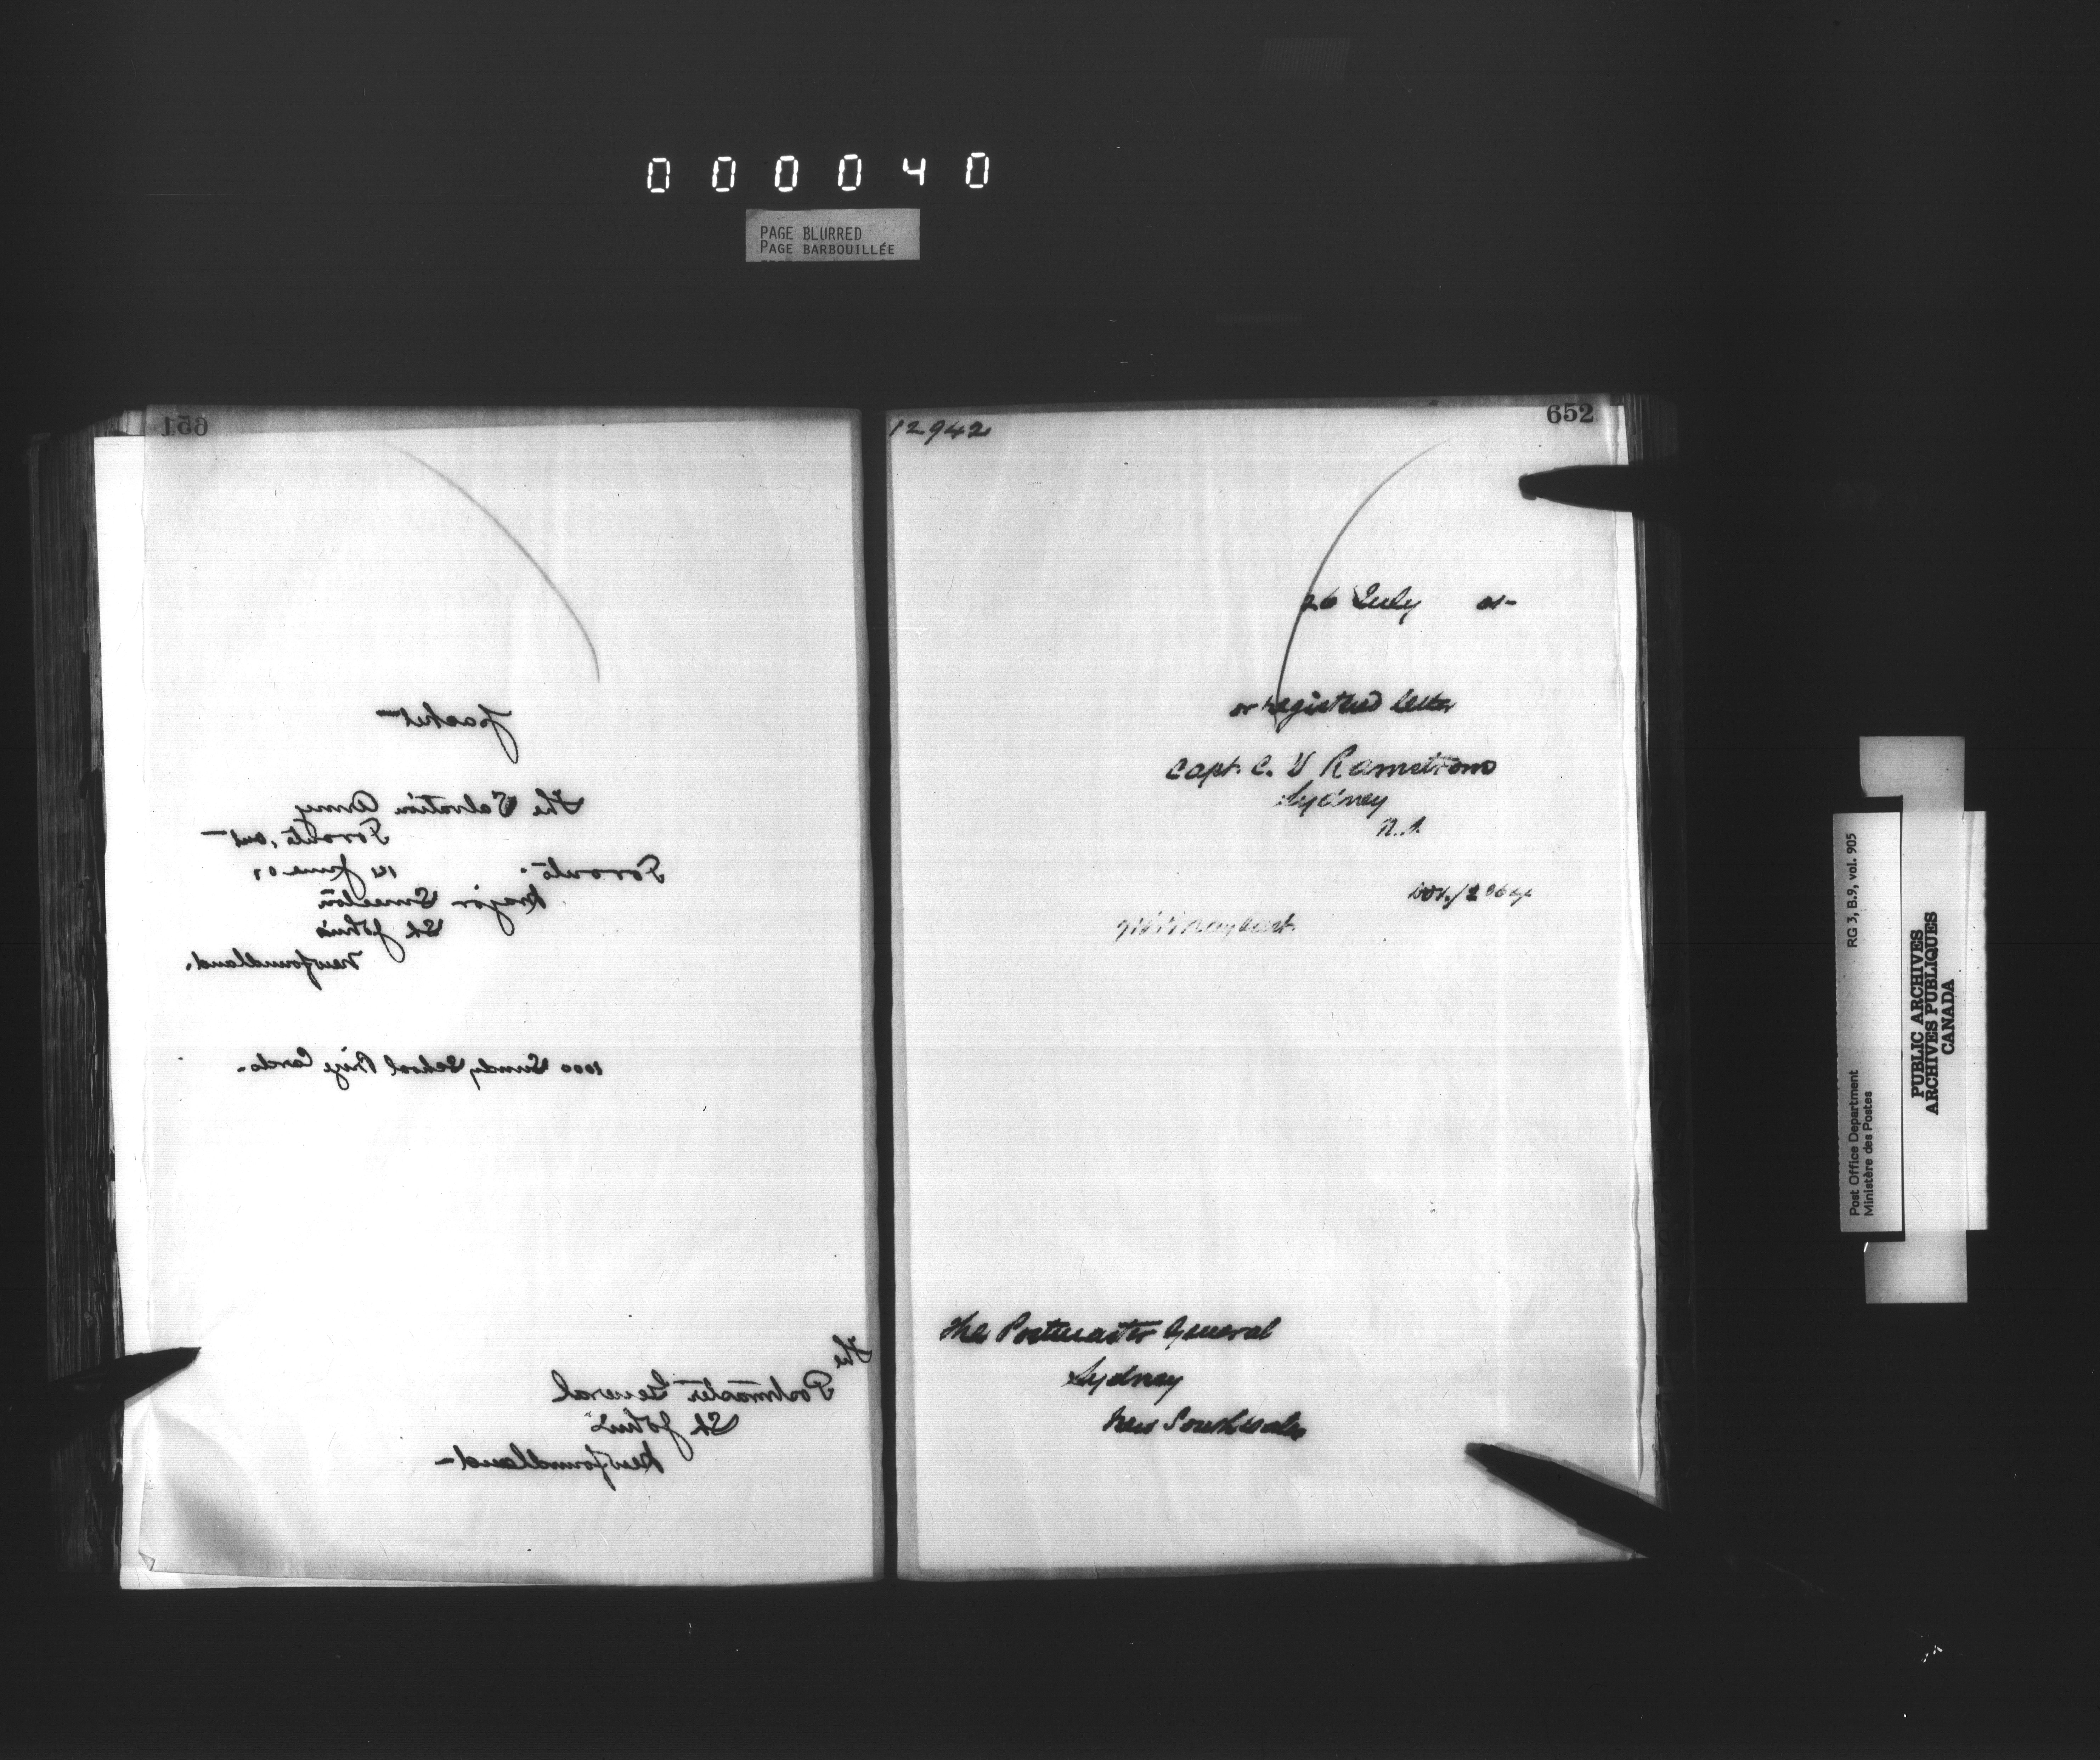 000040
PAGE BLURRED
PAGE BARBOUILLÉE
651
Packet
The Salvation Army
Toronto, Ont
Toronto. 14 June 01
Major Smeeton
St John's
Newfoundland.
1000 Sunday School Prize Cards.
The
Postmaster General
St John's
Newfoundland
12942
652
26 July 01-
or registered letter
Capt. C. V Ramstrom
Sydney
The Postmaster General
Sydney
New South Wales
Post Office Department
Ministère des Postes
RG 3, B.9, vol. 905
PUBLIC ARCHIVES
ARCHIVES PUBLIQUES
CANADA